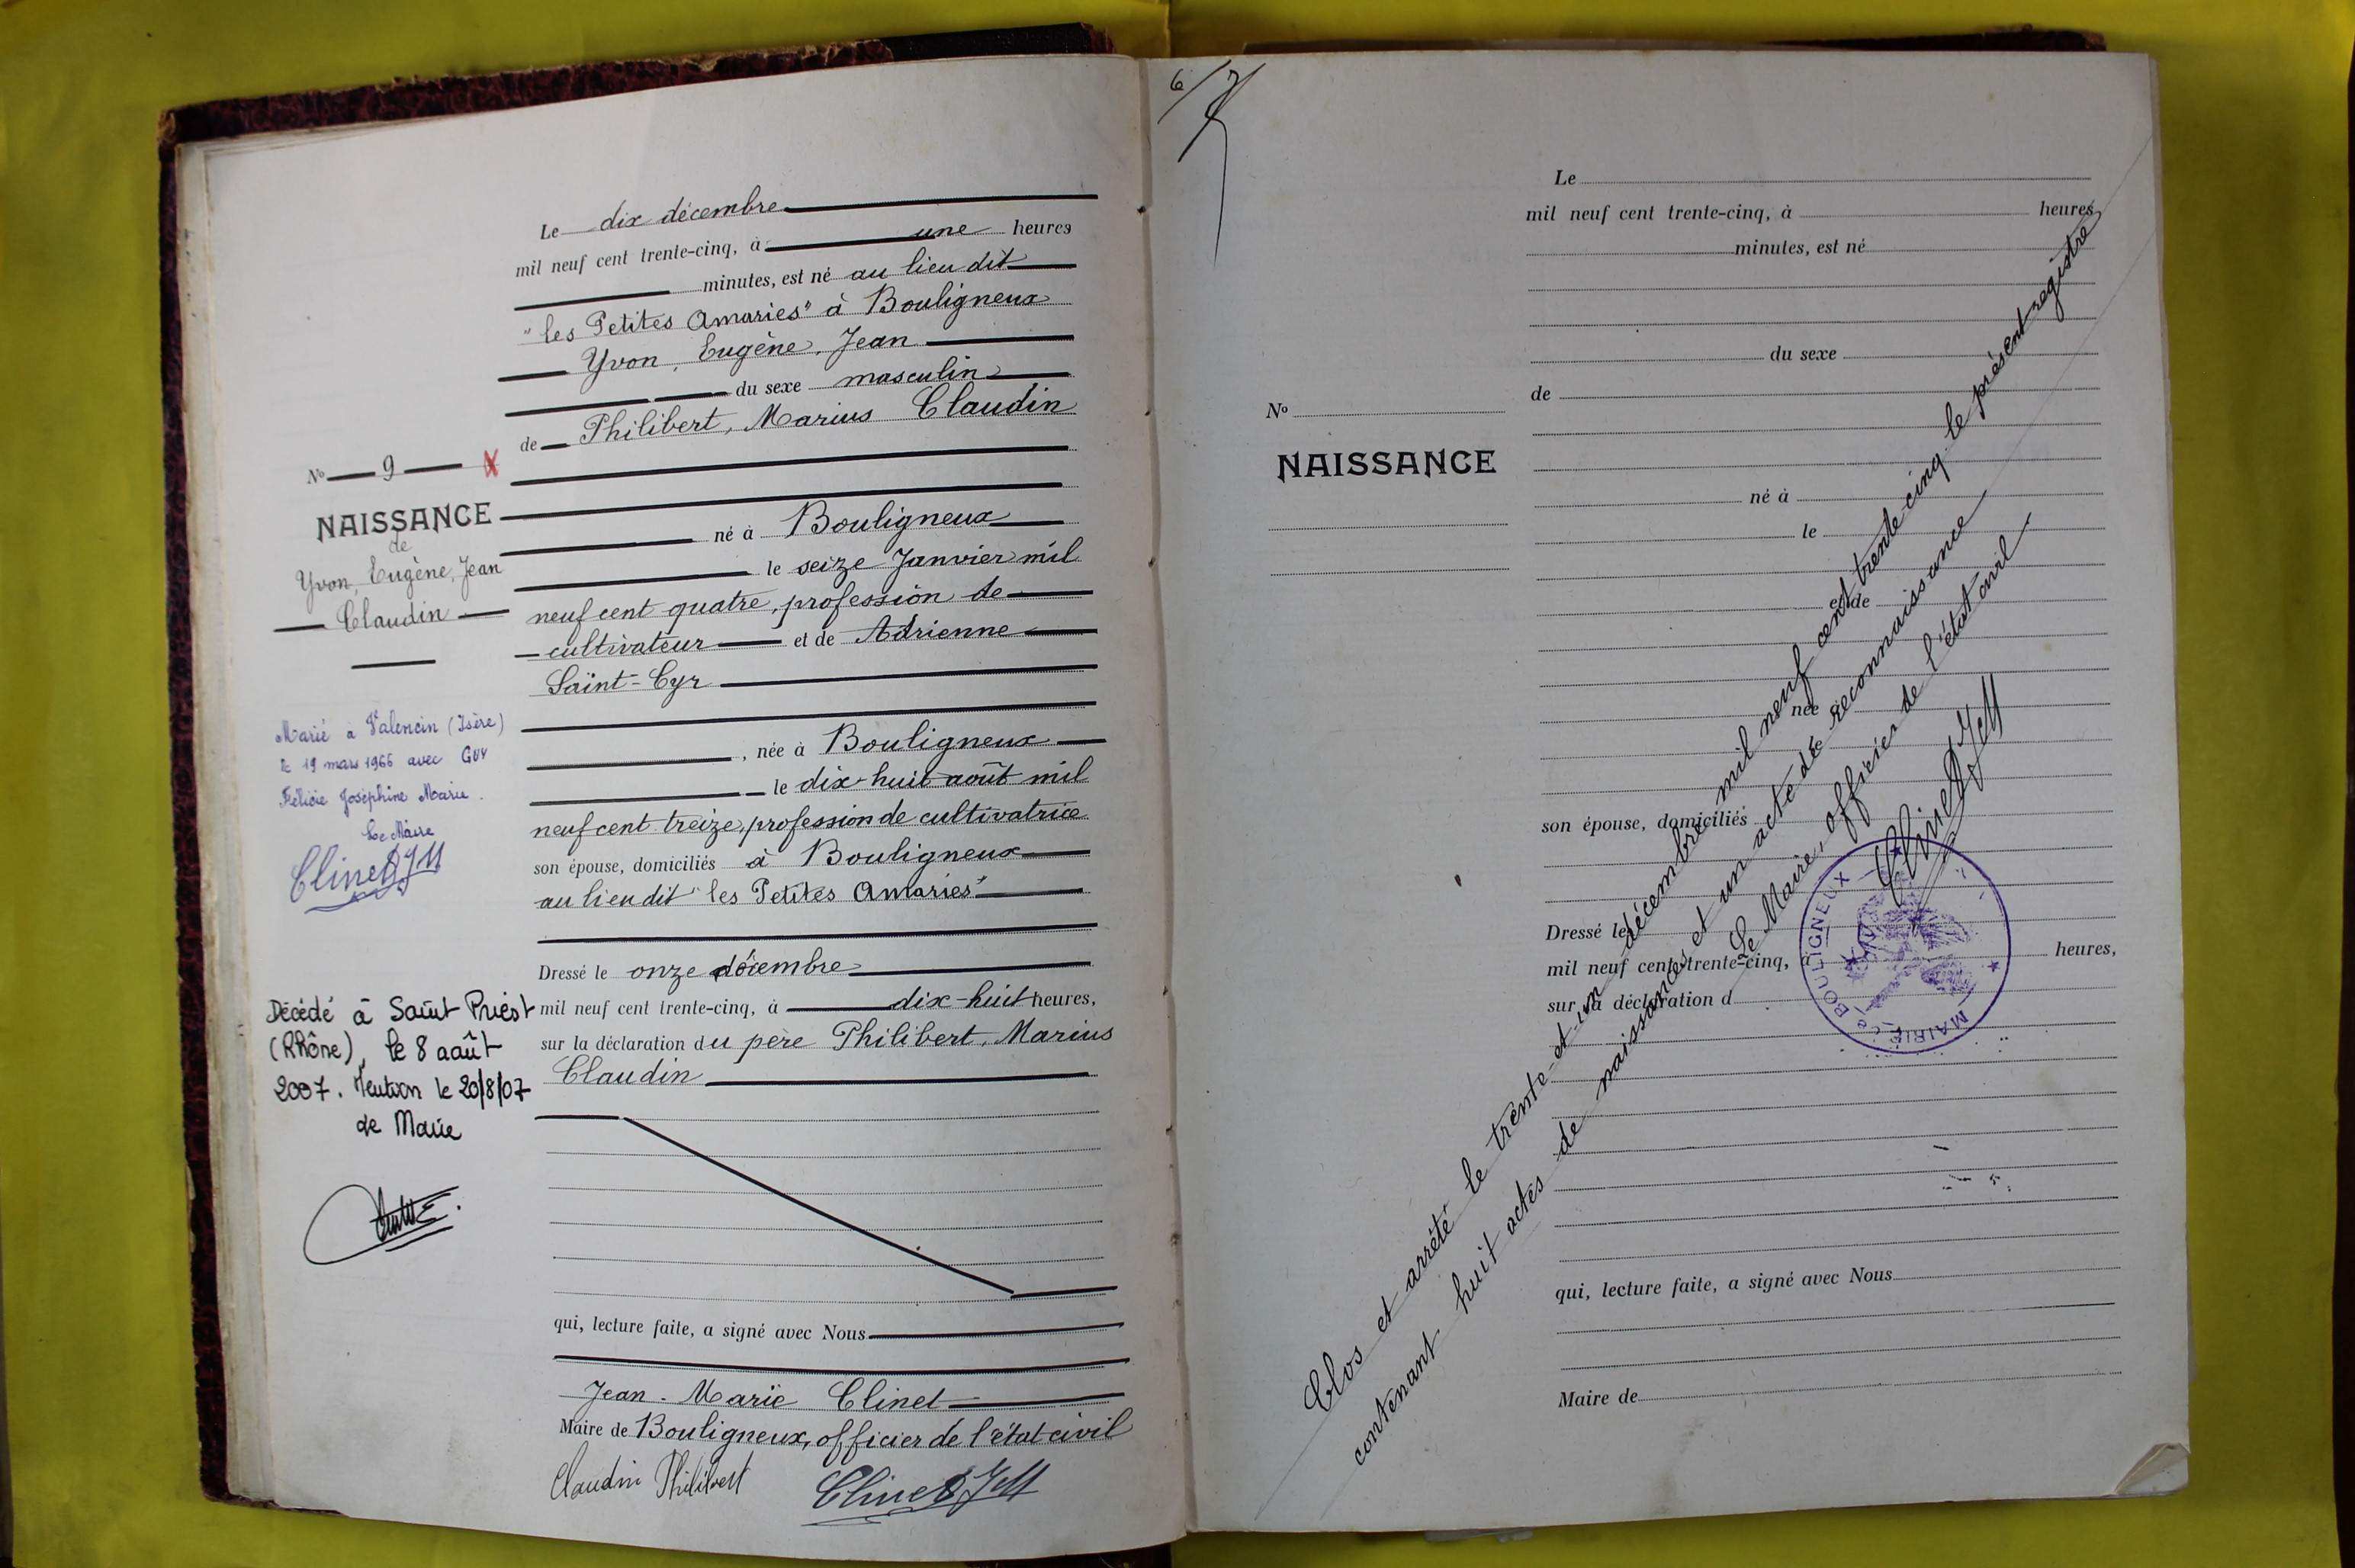 Le dix décembre
mil neuf cent trente-cinq, à une heures
minutes, est né au lieu dit
"les Petites Amaries" à Bouligneux
Yvon, Eugène, Jean
du sexe masculin
de Philibert, Marius Claudin
né à Bouligneux
le seize Janvier mil
neuf cent quatre, profession de
cultivateur et de Adrienne
Saint-Cyr
, née à Bouligneux
le dix-huit août mil
neuf cent treize, profession de cultivatrice
son épouse, domiciliés à Bouligneux
au lieu dit "les Petites Amaries"
Dressé le onze décembre
mil neuf cent trente-cinq, à dix-huit heures,
sur la déclaration du père Philibert, Marius
Claudin
qui, lecture faite, a signé avec Nous
Jean-Marie Clinet
Maire de Bouligneux, officier de l'état civil
Claudin Philibert Clinet JM
No 9
NAISSANCE
de
Yvon, Eugène, Jean
Claudin
Marié à Valencin (Isère)
le 19 mars 1966 avec GUY
Félicie Joséphine Marie.
Le Maire
Clinet JM
Décédé à Saint Priest
(Rhône), le 8 août
2007. Mention le 20/8/07
Le Maire
6/7
No
NAISSANCE
Le
mil neuf cent trente-cinq, à heures
minutes, est né
du sexe
de
né à
le
et de
née à
le
son épouse, domiciliés
Dressé le
mil neuf cent trente-cinq, à heures,
sur la déclaration d
qui, lecture faite, a signé avec Nous
Maire de
Clos et arrêté le trente-et-un décembre mil neuf cent trente cinq le présent registre
contenant huit actes de naissances et un acte de reconnaissance
Le Maire, officier de l'état civil
Clinet JM
MAIRIE de BOULIGNEUX